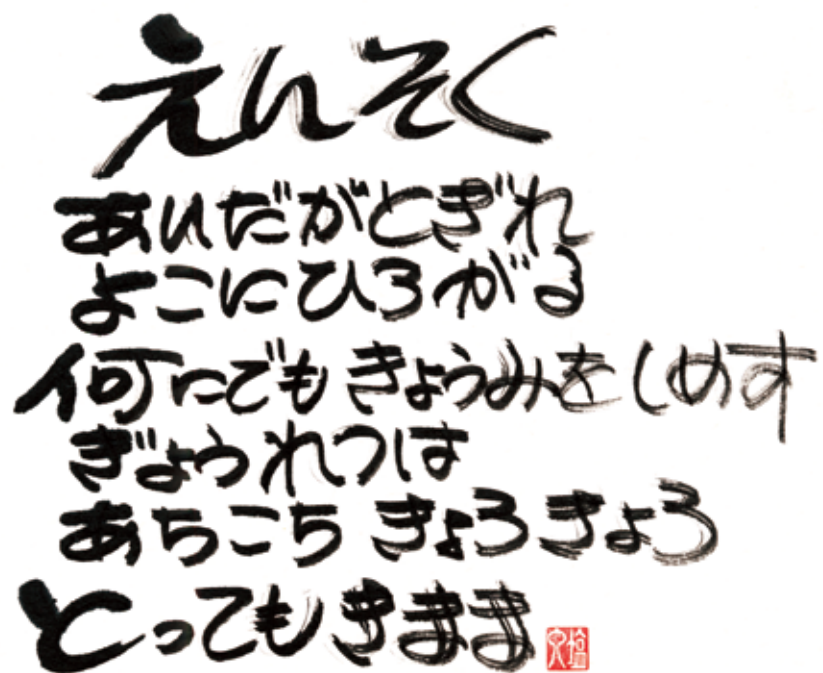 えんそく
あいだがとぎれ
よこにひろがる
何にでもきょうみをしめす
ぎょうれつは
あちこち きょろきょろ
とってもきまま